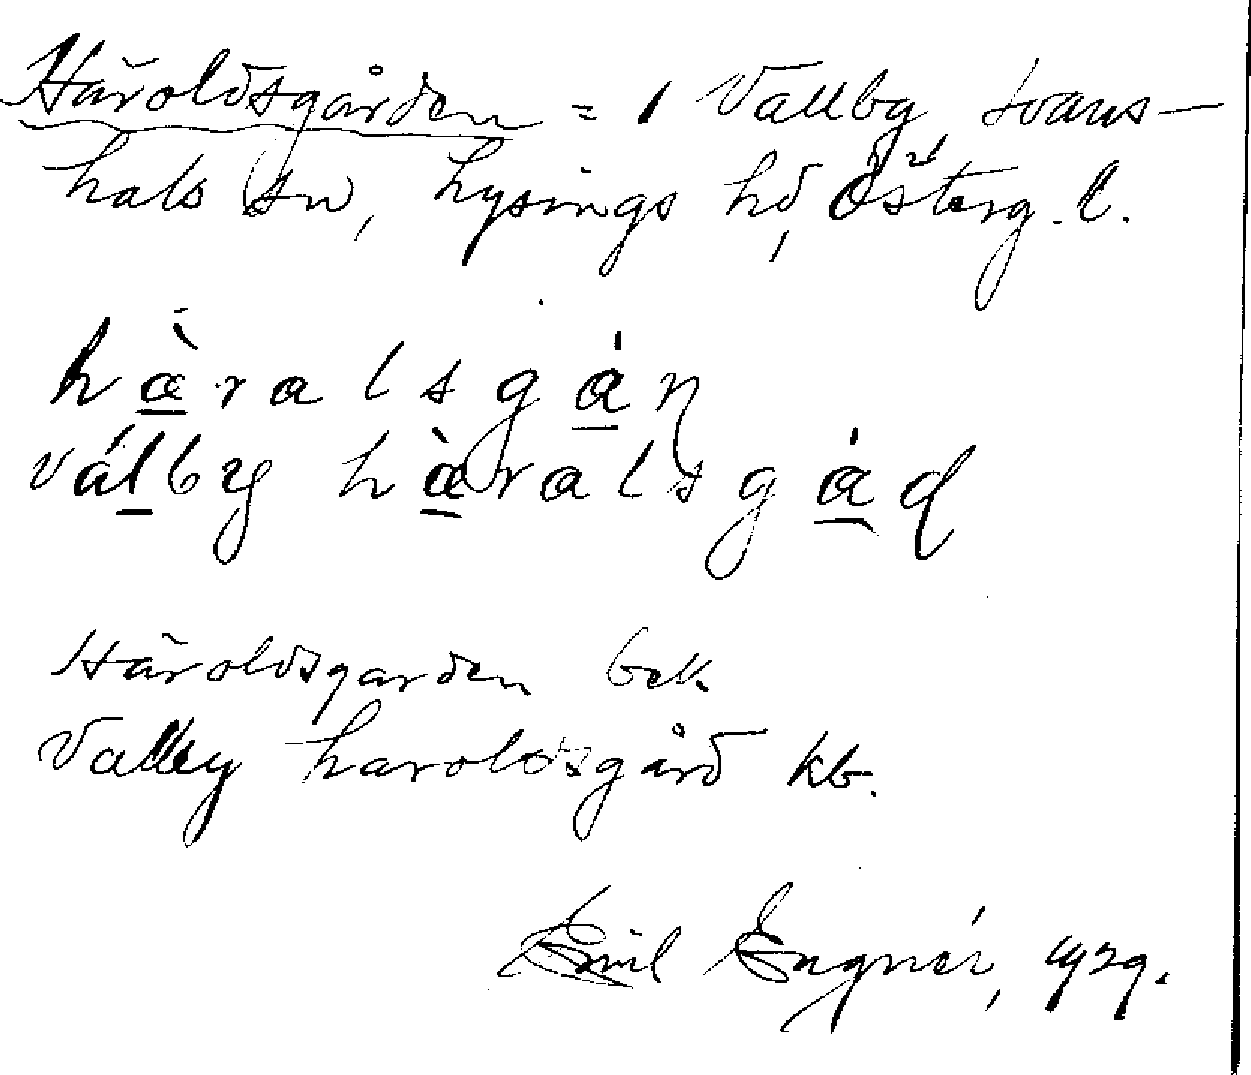 Häroldsgården = 1 Vallby, Svans-
hals sn, Lysings hd, Österg. l.
hàralsgán
válby hàralsgád
Häroldsgarden bek.
Vallby haroldsgård kb.
Emil Engnér, 1929.